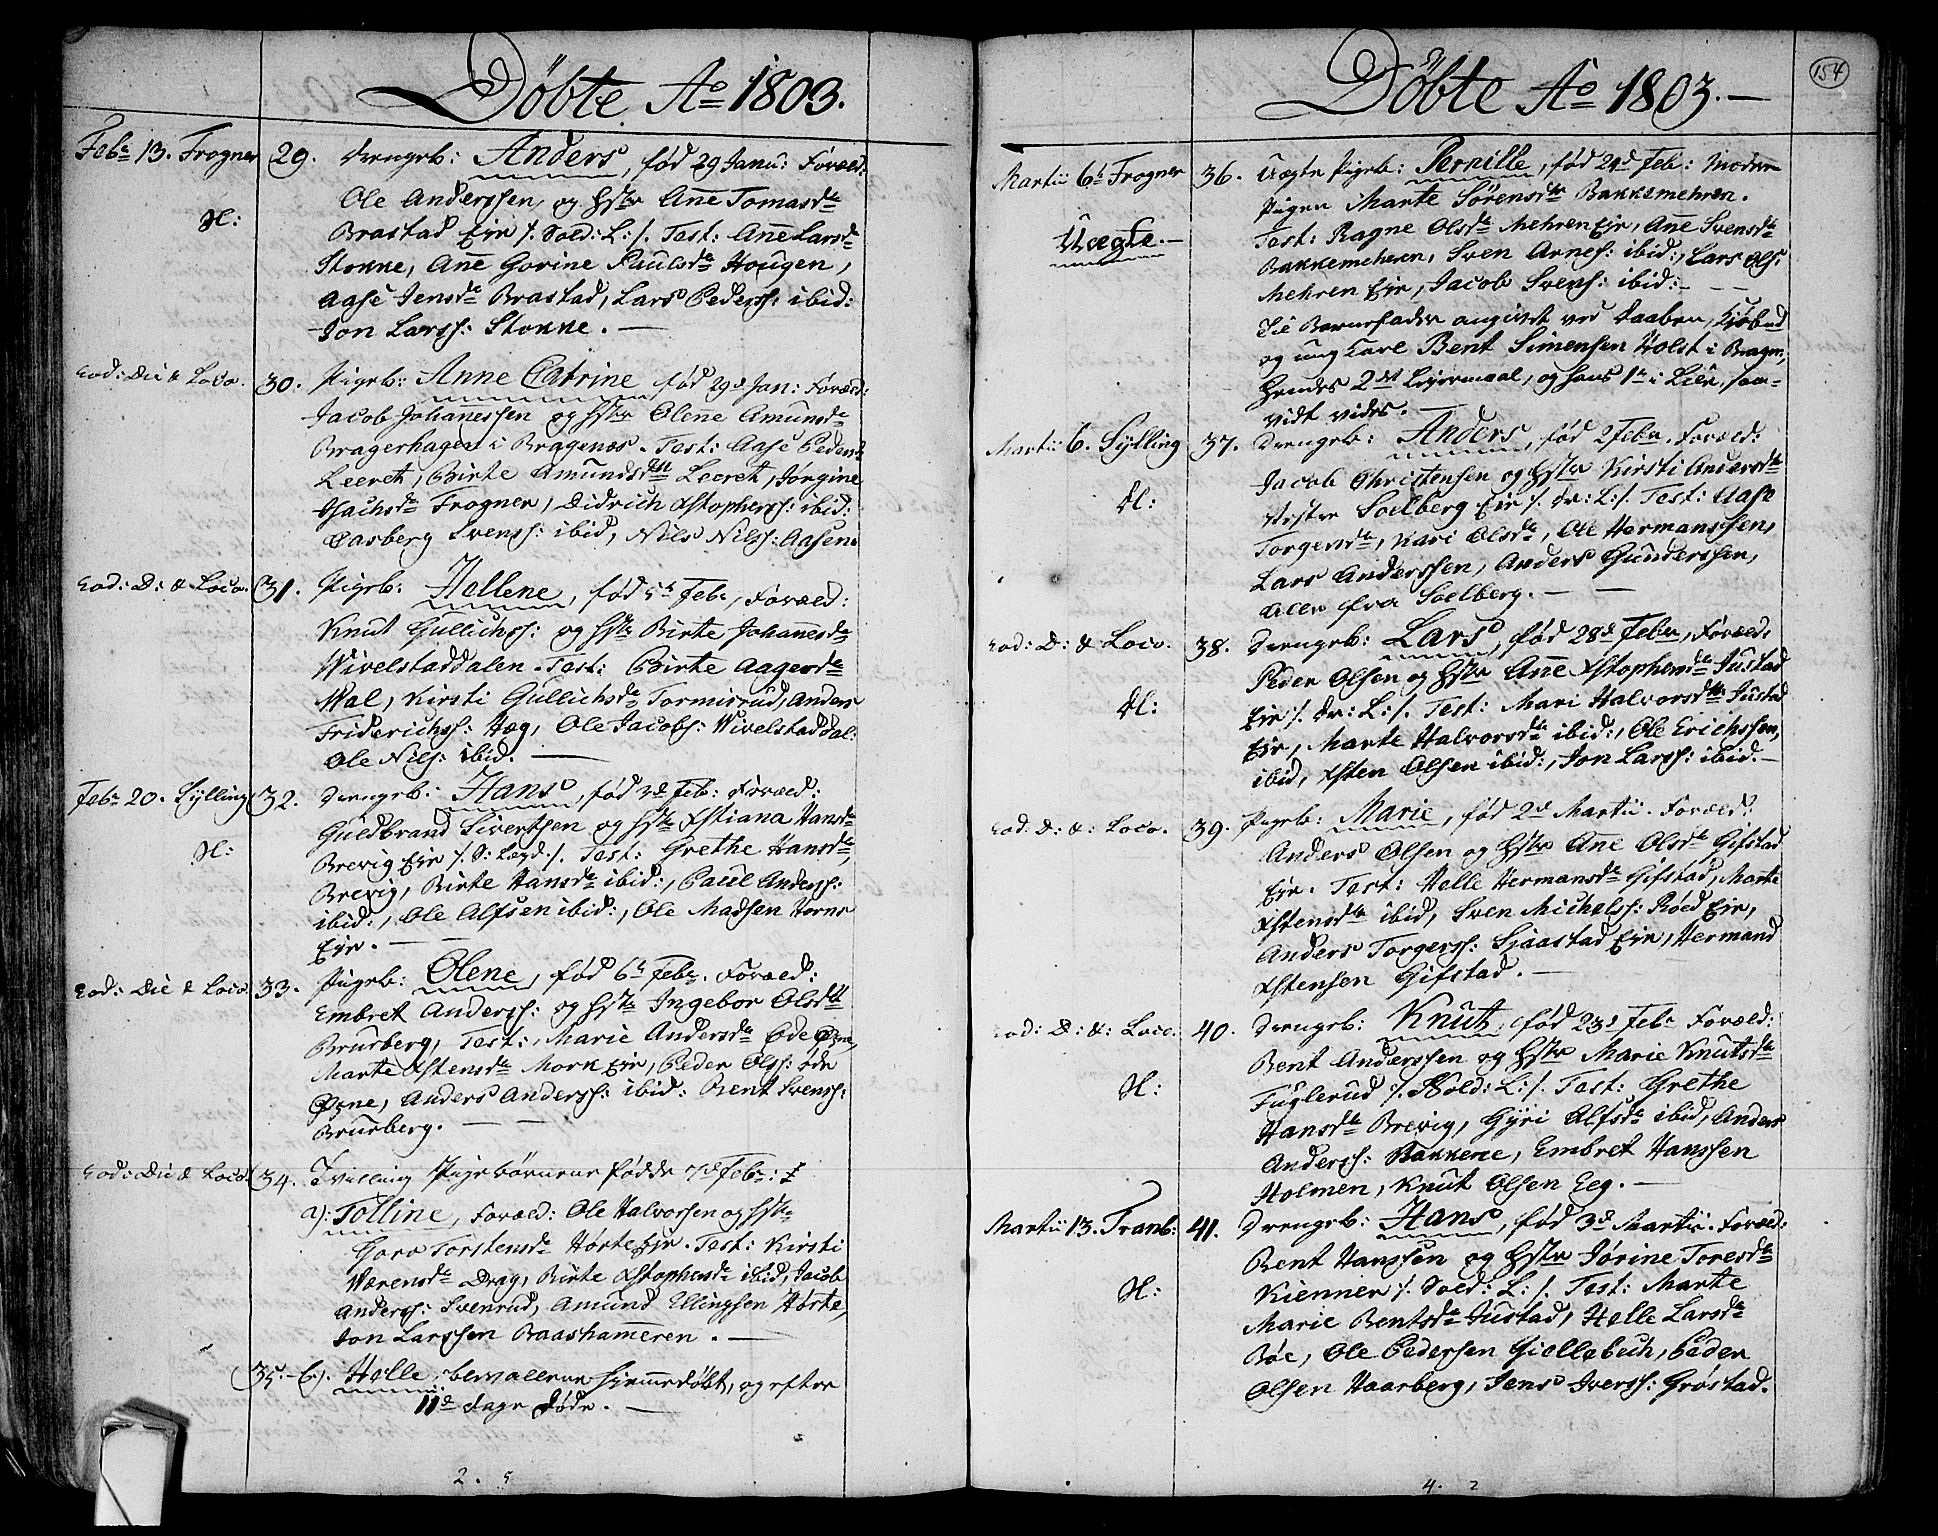 Döbte Ao 1803.
Febr 13. Frogner 29. Drengeb: Anders, fød 29 Janu: Foræld:
Ole Anderssen, og Hstr Anne Tomasdr
H: Brastad Eje /. Sold: L: /. Test: Anne Larsdr
Stokke, Anne Gorine Paulsdr Hougen,
Aase Jensdr Brastad, Lars Peders: ibid:
Jon Larss: Stokke. —
eod: Die & Loco. 30. Pigeb: Anne Catrine, fød 29d Jan: Foræld:
Jacob Johannessen og Hstr Olene Amundsdr
Bragerhagen i Bragenæs. Test: Aase Pedersdr
Leeret, Birte Amundsdr Leeret, Jørgine
Isachsdr Frogner, Didrich Xstophers: ibid:
Casberg Svens: ibid, Nils Nils: Aasen.
eod: D: & Loco. 31. Pigeb: Hellene, fød 5t Febr, Foræld:
Knut Gullichs: og Hstr Birte Johannesdr
Wivelstaddalen. Test: Birte Aagesdr
Wal, Kirsti Gullichsdr Tormisrud, Anders
Friderichs: Hæg, Ole Jacobs: Wivelstaddal:
Ole Nils: ibid. —
Febr 20. Sylling 32. Drengeb: Hans, fød 3d Feb: Foræld:
Guldbrand Sivertsen og Hstr Xstiana Hansdr
H: Brevig Eje /. S: Lægd. /. Test: Grethe Hansdr,
Brevig, Birte Hansdr ibid:, Paul Anders:
ibid:, Ole Alfsen ibid:, Ole Madsen Horne
Eje. —
eod: Die & Loco. 33. Pigeb: Olene, fød 6t Febr. Foræld:
Embret Anders: og Hstr Ingebor Olsdr
Brurberg, Test: Marie Andersdr Øde Øzne,
Marte Xstensdr Mork Eje, Peder Ols: øde
Øzne, Anders Anders: ibid: Bent Svens:
Brurberg. —
eod: Die & Loco. 34. Tvilling Pigebørnene fødde 7d Febr:
a): Tolline, Foræld: Ole Halvorsen og Hstr
Goro Torstensdr Hørte Eje. Test: Kirsti
Wærensdr Drag, Birte Xstophersdr ibid, Jacob
Anders: Svenrud, Amund Ellingsen Hørte,
Jon Larssen Baashammeren. —
35. b): Helle, bemeldte hjemmedøbt, og efter
11d Dage døde. —
2. 5
Döbte Ao 1803. —
154
Martii 6t Frogner 36. Uægte Pigeb: Pernille, fød 24d Feb: Moder
Pigen Marte Sørensdr Bakkemehren.
Uægte. — Test: Ragne Olsdr Mehren Eje, Anne Svensdr
Bakkemehren, Sven Arnes: ibid:, Lars Ols:
Mehren Eje, Jacob Svens: ibid: —
Til Barnefader angivet ved Daaben,
og ung Karl Bent Simensen Holst i Bragen,
Hendes 2det Leiermaal, og hans 1te i Lier, saa-
vidt vides. —
Martii 6. Sylling 37. Drengeb: Anders, fød 2 Febr. Foræld:
Jacob Christensen og Hstr Kirsti Andersdr
H: Vestre Soelberg Eje /. Dr: L: /. Test: Aase
Torgersdr, Kari Olsdr, Ole Hermanssen,
Lars Anderssen, Anders Gunderssen,
Alle fra Soelberg. —
eod: D: & Loco. 38. Drengeb: Lars, fød 28d Febr, Foræld:
Peder Olsen og Hstr Anne Xstophersdr Justad
H: Eje /. Dr: L: /. Test: Mari Halvorsdr Justad
Eje, Marte Halvorsdr ibid:, Ole Erichssen,
ibid, Xsten Olsen ibid:, Jon Larss: ibid. —
eod: D: &: Loco. 39. Pigeb: Marie, fød 2d Martii. Foræld:
Anders Olsen og Hstr Anne Olsdr Gifstad
Eje. Test: Helle Hermansdr Gifstad, Marte
Xstensdr ibid, Sven Michels: Røed Eje,
Anders Torgers: Sjaastad Eje, Hermand
Xstensen Gifstad. —
eod: D: &: Loco. 40. Drengeb: Knut, fød 23d Febr Foræld:
Bent Anderssen og Hstr Marie Knutsdr
H: Fuglerud /. Sold: L: /. Test: Grethe
Hansdr Brevig, Gyri Alfsdr ibid, Anders
Anders: Bakkene, Embret Hanssen
Holmen, Knut Olsen Eeg. —
Martii 13. Tranb: 41. Drengeb: Hans, fød 3d Martii. Foræld:
Bent Hanssen og Hstr Jørine Toresdr
H: Kienner /. Sold: L: /. Test: Marte
Marie Bentsdr Justad, Helle Larsdr
Bøe, Ole Pedersen Giellebech, Peder
Olsen Haarberg, Jens Ivers: Grøstad.
4. 2